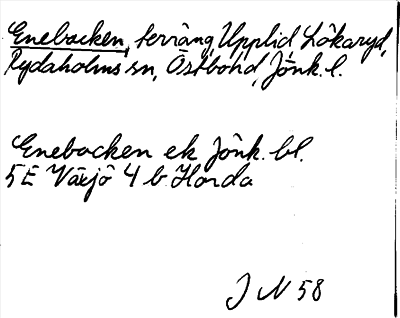 Enebacken, terräng, Upplid, Lökaryd,
Rydaholms sn, Östbo hd, Jönk. l.
Enebacken ek Jönk. bl.
5E Växjö 4 b Horda
J N 58